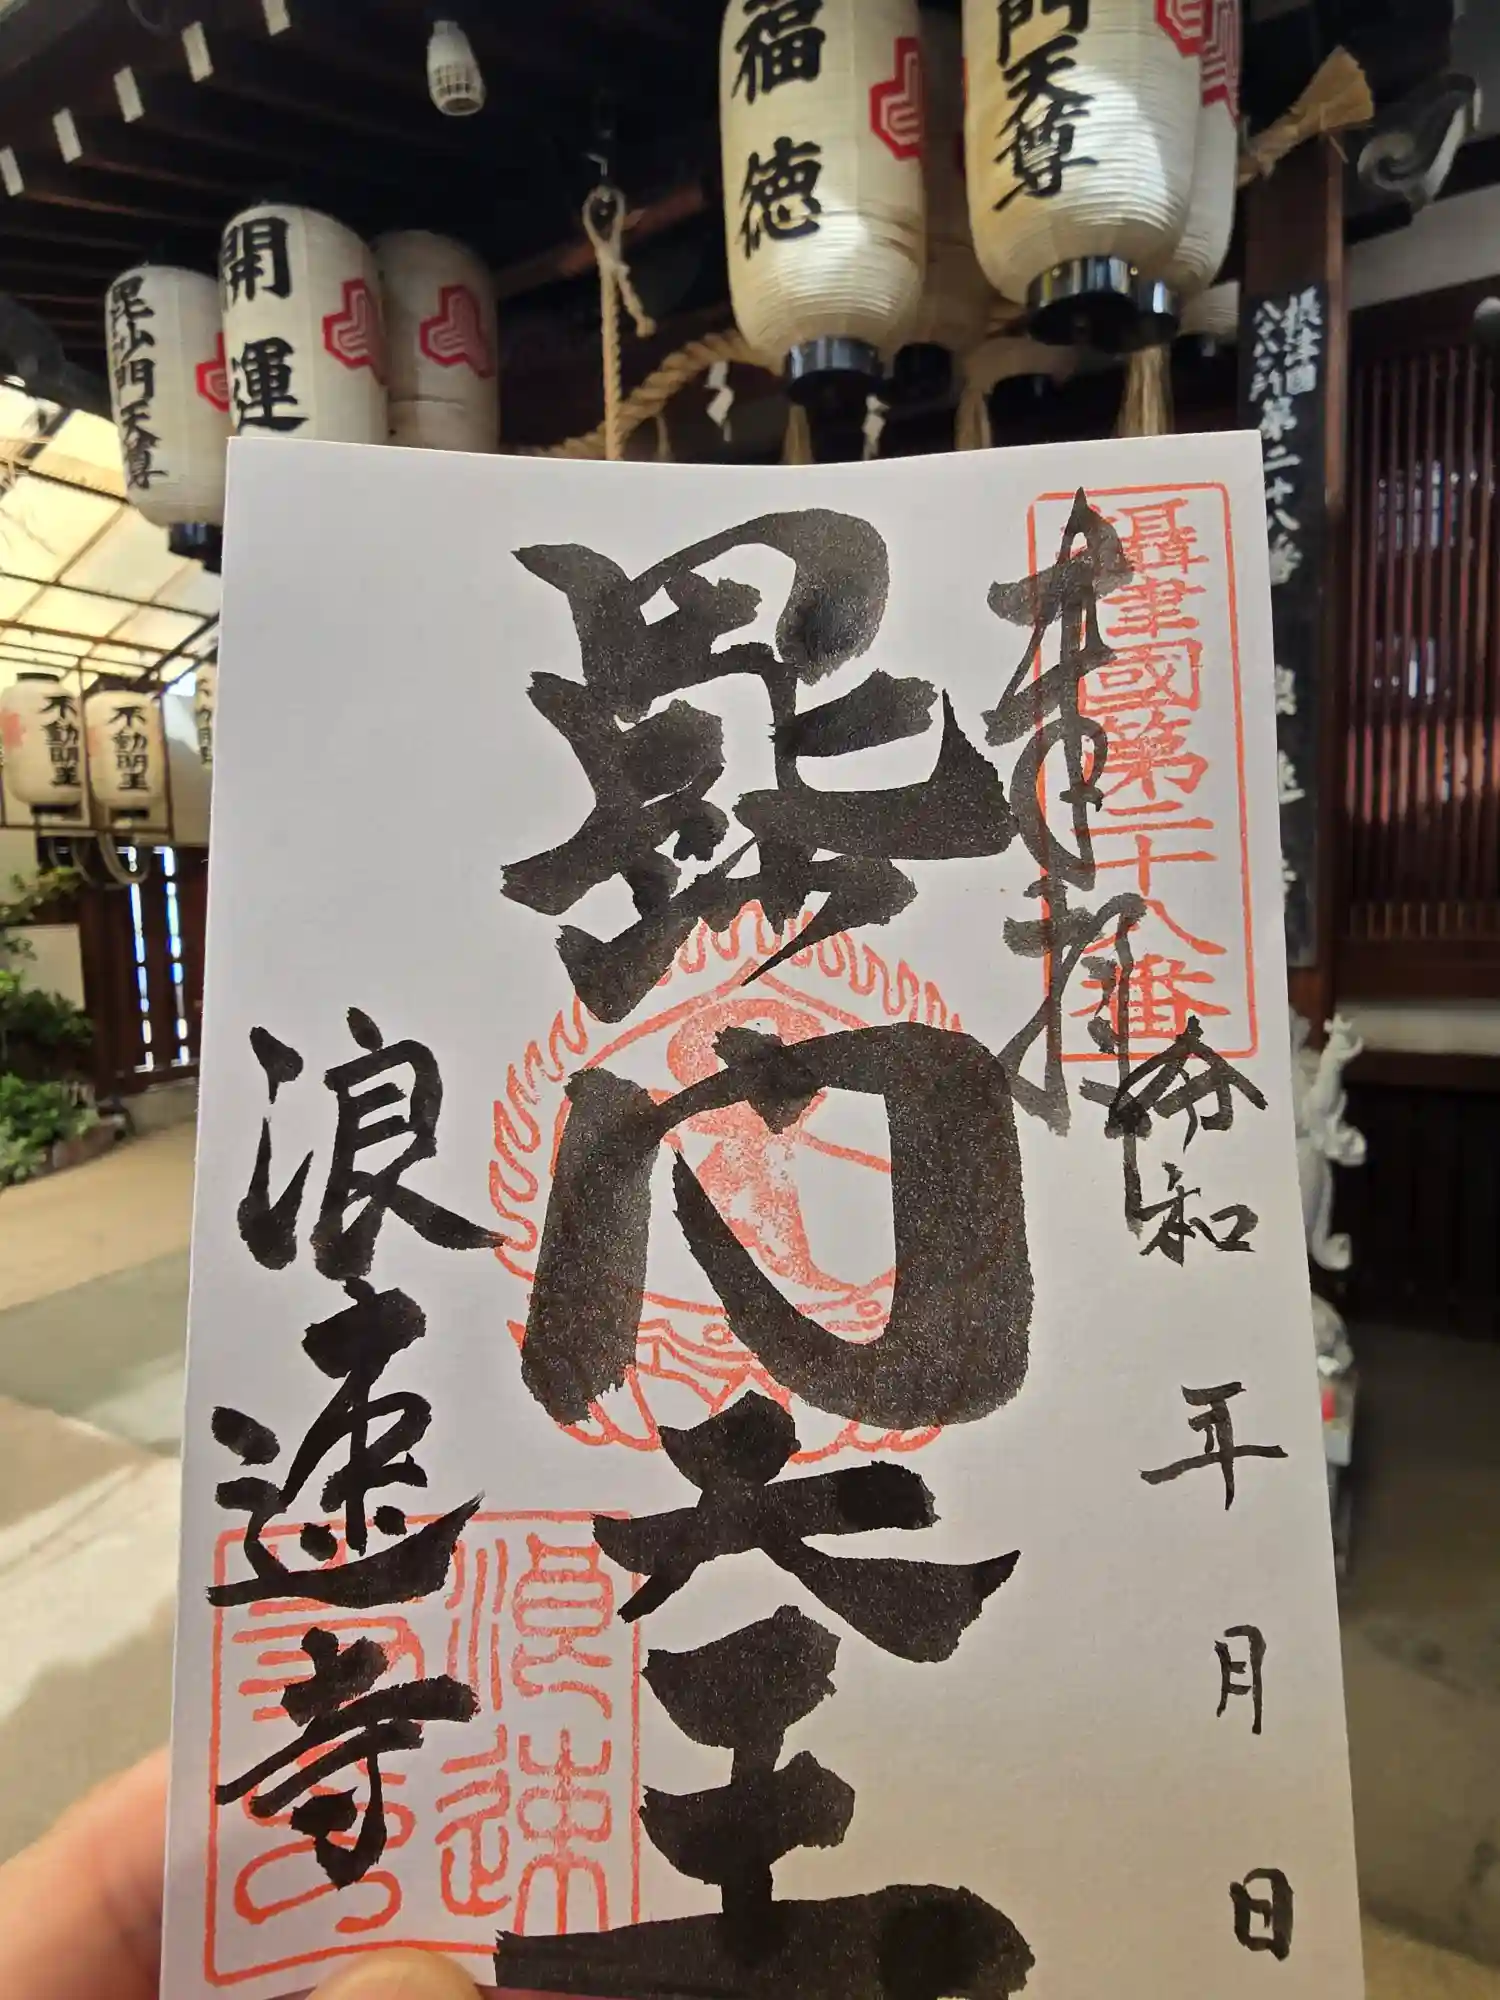 福徳
門天尊
開運
毘沙門天尊
不動明王
不動明王
摂津国
八十八ヶ所第二十八番
攝津國第二十八番
奉拝
令和 年 月 日
毘沙門天王
浪速寺
浪速